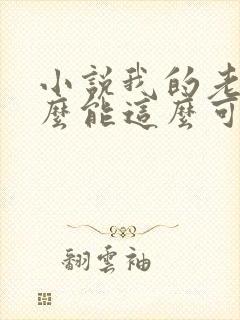 小說我的老
麼能這麼可
翻雲袖